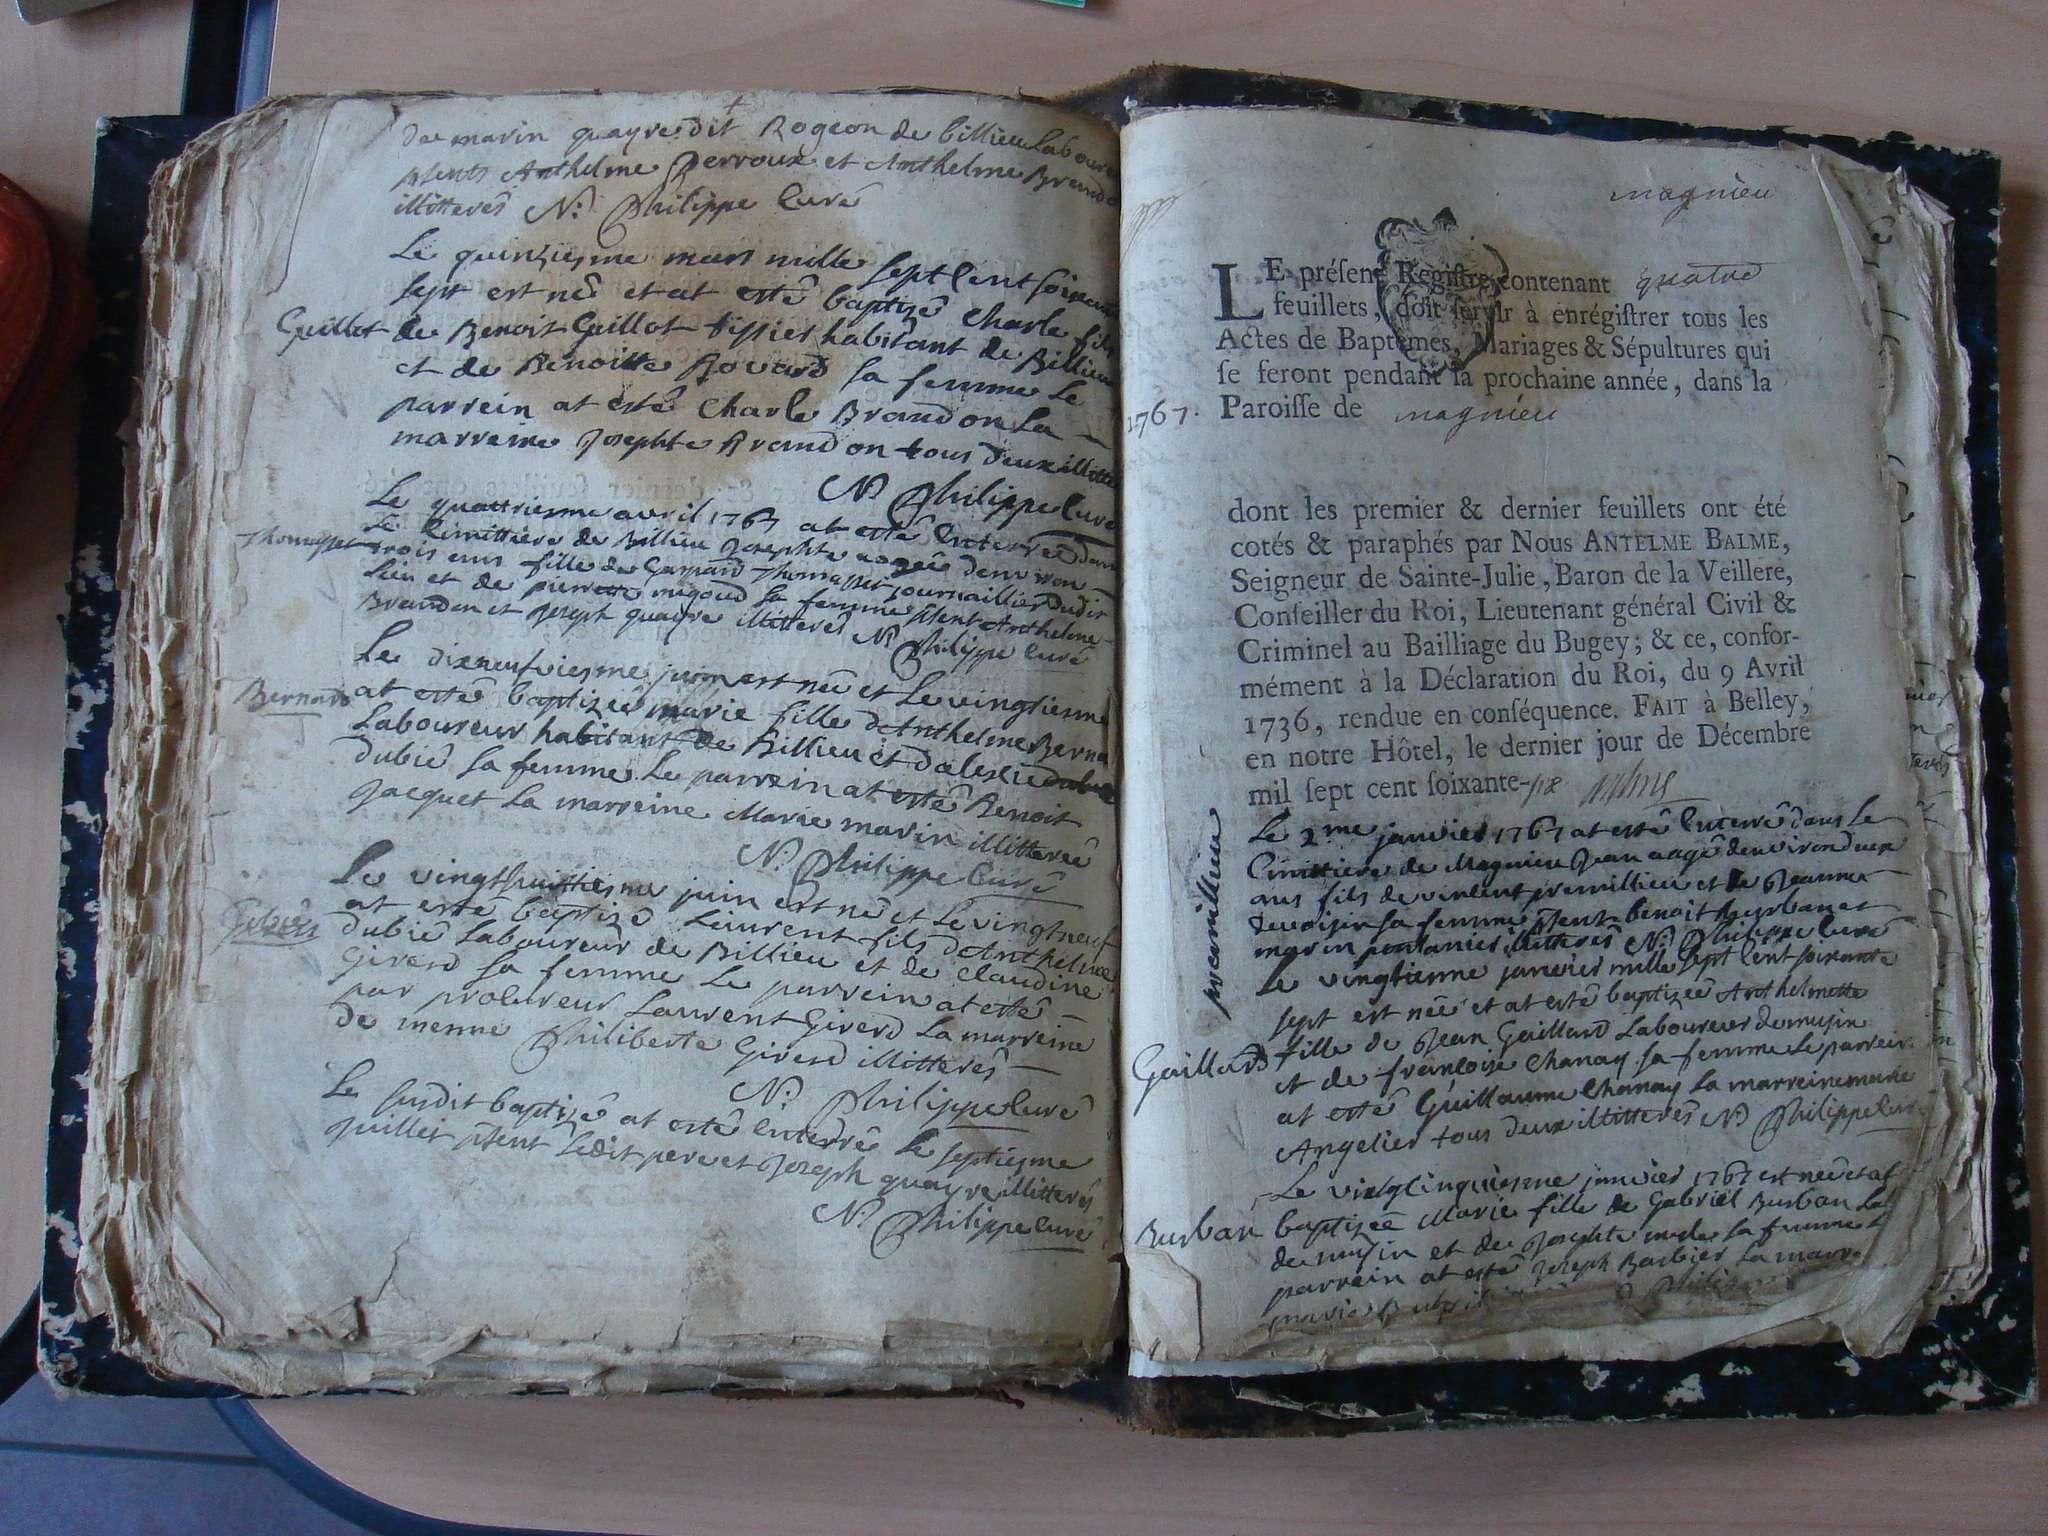 de marin quayre dit Rogeon de billieu laboure
pnts Anthelme Perroux et Anthelme Brando
illitterés N. Philippe Curé
Le quinziesme mars mille sept Cent soixante
sept est né et at esté baptizé Charle fils
Guillot de Benoit Guillot tissier habitant de Billieu
et de Benoitte Rovard sa femme Le
parrein at esté Charle Brandon La
marreine Josephte Brandon tous deux illitte
N. Philippe Curé
Le quattriesme avril 1767 at esté Enterrée dans
Le Cimittiere de Billieu Josephte aagée denviron
Thomasset trois ans fille de Gaspard Thomasset journaillier dudit
Lieu et de pierrette migoud sa femme psent Anthelme
Brandon et Joseph quayre illitterés N. Philippe Curé
Le dixneufviesme juin est née et Le vingtiesme
Bernard at estée baptizée Marie fille dAnthelme Berna
Laboureur habitant de Billieu et dalexie
dubié sa femme Le parrein at esté Benoit
Jacquet La marreine Marie marin illitterée
N. Philippe Curé
Le vingthuittiesme juin est né et Le vingtneuf
at esté baptizé Laurent fils dAnthelme
dubié Laboureur de Billieu et de Claudine
Girerd sa femme Le parrein at esté
par procureur Laurent Girerd La marreine
de mesme Philiberte Girerd illitterés
N. Philippe Curé
Le susdit baptizé at esté Enterré Le septiesme
juillet psent Ledit pere et Joseph quayre illitterés
N. Philippe Curé
magnieu
LE présent Registre contenant quatre
feuillets, doit servir à enrégistrer tous les
Actes de Baptêmes, Mariages & Sépultures qui
se feront pendant la prochaine année, dans la
1767. Paroisse de magnieu
dont les premier & dernier feuillets ont été
cotés & paraphés par Nous ANTELME BALME,
Seigneur de Sainte-Julie, Baron de la Veillere,
Conseiller du Roi, Lieutenant général Civil &
Criminel au Bailliage du Bugey; & ce, confor-
mément à la Déclaration du Roi, du 9 Avril
1736, rendue en conséquence. FAIT à Belley,
en notre Hôtel, le dernier jour de Décembre
mil sept cent soixante-six
premillieu
Le 2me janvier 1767 at esté Enterré dans Le
Cimittiere de Magnieu Jean aagé denviron deux
ans fils de vincent premillieu et de Jeanne
sa femme psent benoit burban et
marin illitterés N. Philippe Curé
Le vingtiesme janvier mille sept Cent soixante
sept est née et at esté baptizée Anthelmette
Gaillard fille de Jean Gaillard Laboureur de musin
et de francoise Chanay sa femme Le parrein
at esté Guillaume Chanay La marreine marie
Angelier tous deux illitterés N. Philippe Curé
Le vingtcinquiesme janvier 1767 est née et at
Burban baptizée Marie fille de Gabriel Burban La
de musin et de Josephte sa femme L
parrein at esté Joseph Barbier La marre
marie